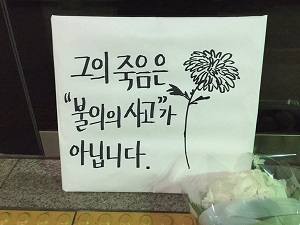 그의 죽음은
"불의의 사고"가
아닙니다.